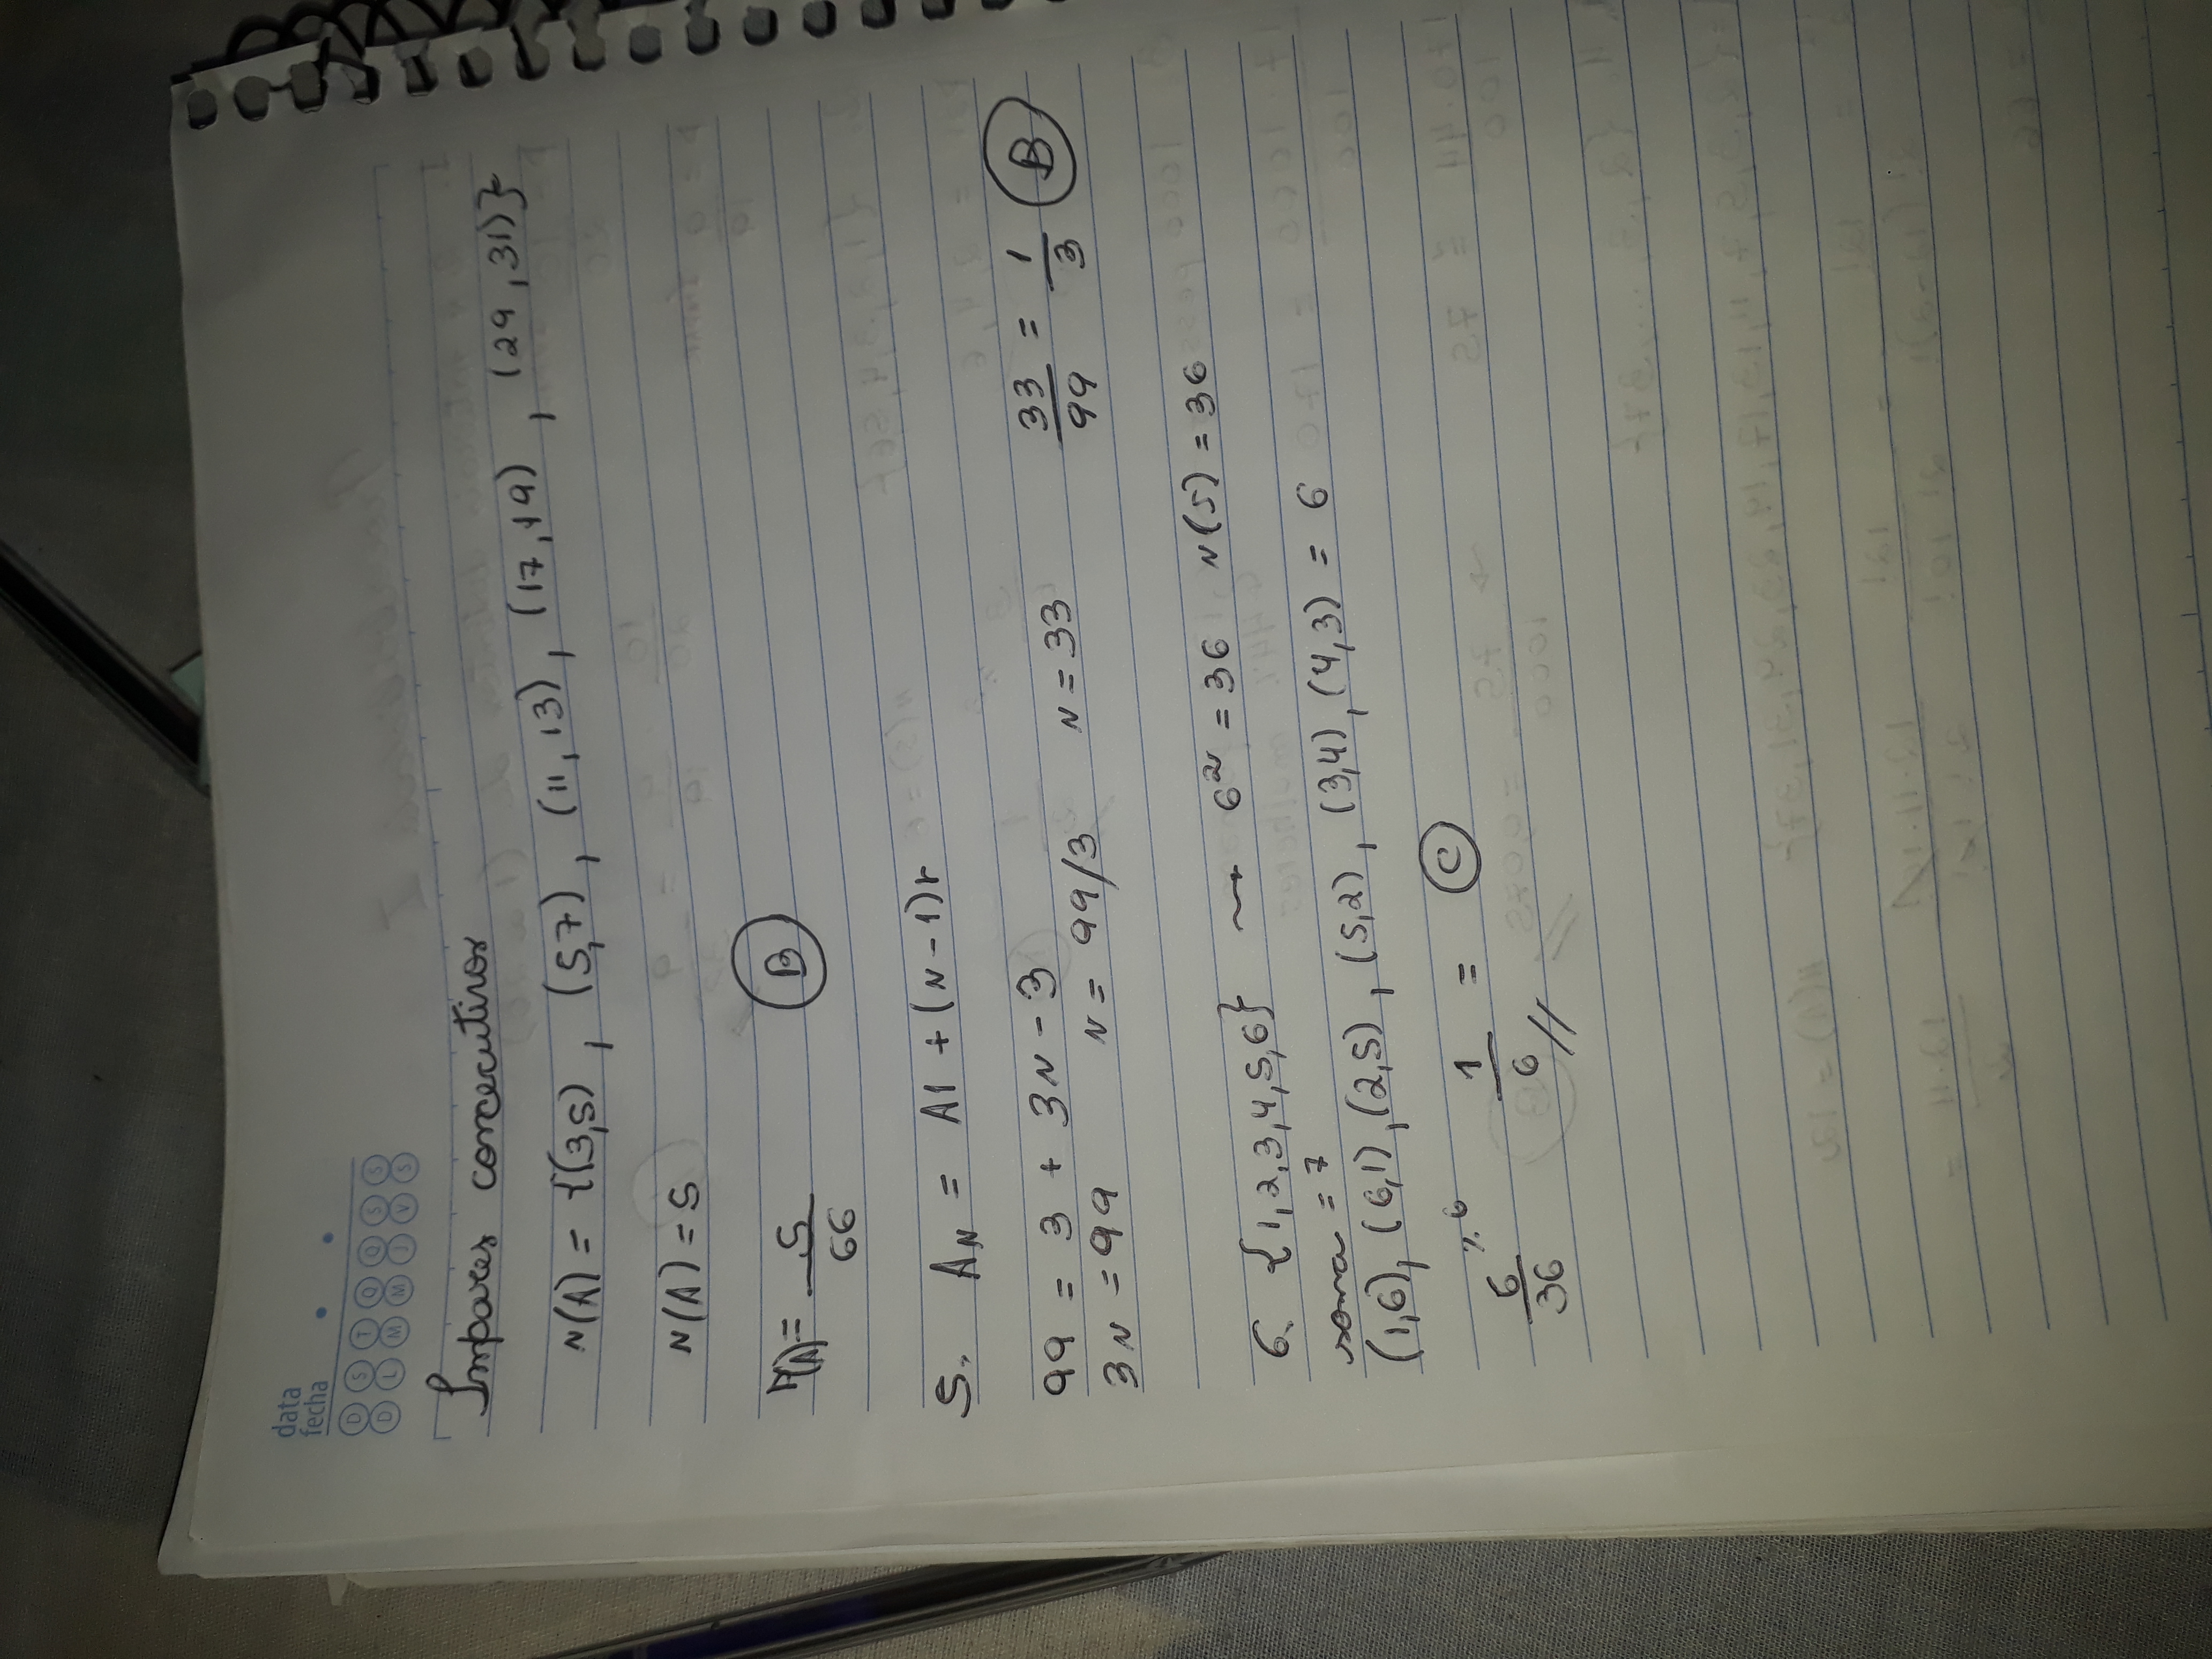 data
fecha
D S T Q Q S S
D L M M J V S
Impares concecutivos
N(A) = {(3,5) , (5,7) , (11, 13) , (17, 19) , (29, 31)}
N(A) = 5
P(A) = 5/66 B
5. AN = A1 + (N - 1)r
99 = 3 + 3N - 3
3N = 99 N = 99/3 N = 33 33/99 = 1/3 B
6. {1,2,3,4,5,6} → 6² = 36 N(S) = 36
soma = 7
(1,6), (6,1), (2,5), (5,2), (3,4), (4,3) = 6
6/36 ÷6 1/6 // = C